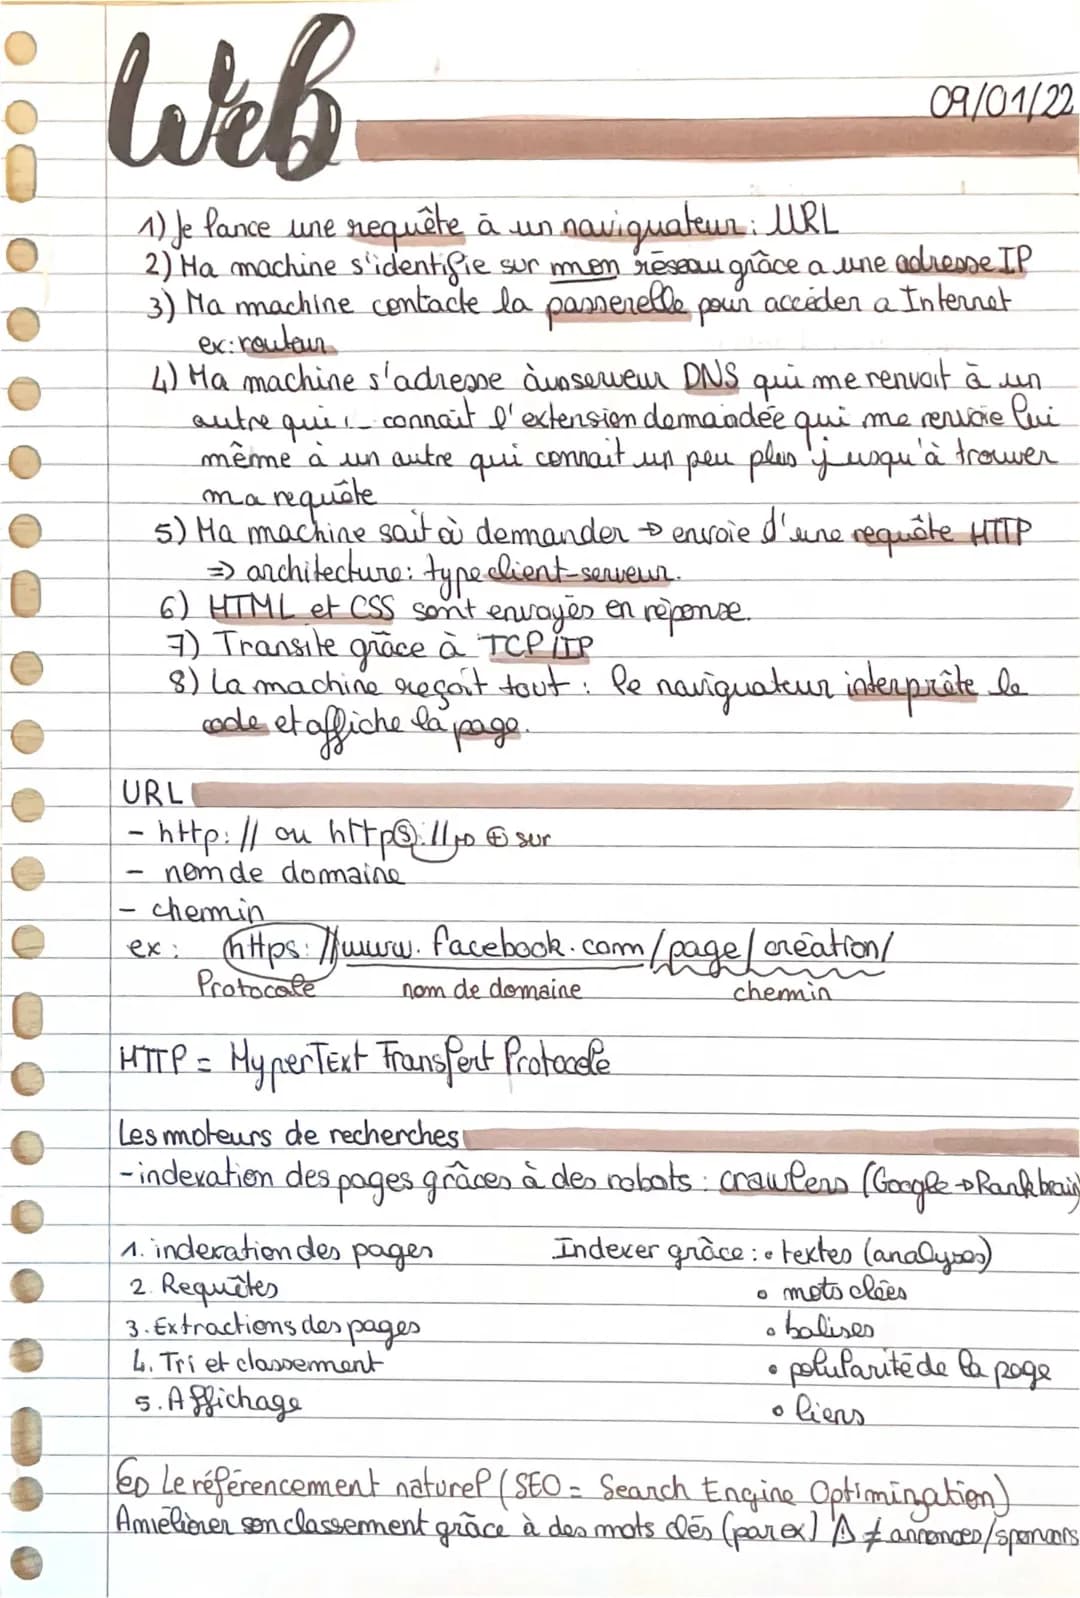 Web
09/01/22
1) Je lance une requête à un naviguateur : URL
2) Ma machine s'identifie sur mon réseau grâce a une adresse IP
3) Ma machine contacte la passerelle pour accéder a Internet
ex: routeur
4) Ma machine s'adresse à un serveur DNS qui me renvoit à un
autre qui connait l'extension demandée qui me renvoie lui
même à un autre qui connait un peu plus jusqu'à trouver
ma requête
5) Ma machine sait où demander → envoie d'une requête HTTP
=> architecture: type client-serveur.
6) HTML et CSS sont envoyés en réponse.
7) Transite grâce à TCP/IP
8) La machine reçoit tout : le naviguateur interprète le
code et affiche la page.
URL
- http:// ou https:// → ⊕ sur
- nom de domaine
- chemin
ex : https://www.facebook.com/page/création/
Protocole nom de domaine chemin
HTTP = HyperTExt Transfert Protocole
Les moteurs de recherches
- indexation des pages grâces à des robots : crawlers (Google → Rankbrain)
1. indexation des pages
2. Requêtes
3. Extractions des pages
4. Tri et classement
5. Affichage
Indexer grâce : • textes (analyses)
• mots clées
• balises
• polularité de la page
• liens
↳ Le référencement naturel (SEO = Search Engine Optiminzation)
Améliorer son classement grâce à des mots clés (par ex) ⚠ ≠ annonces/sponsors